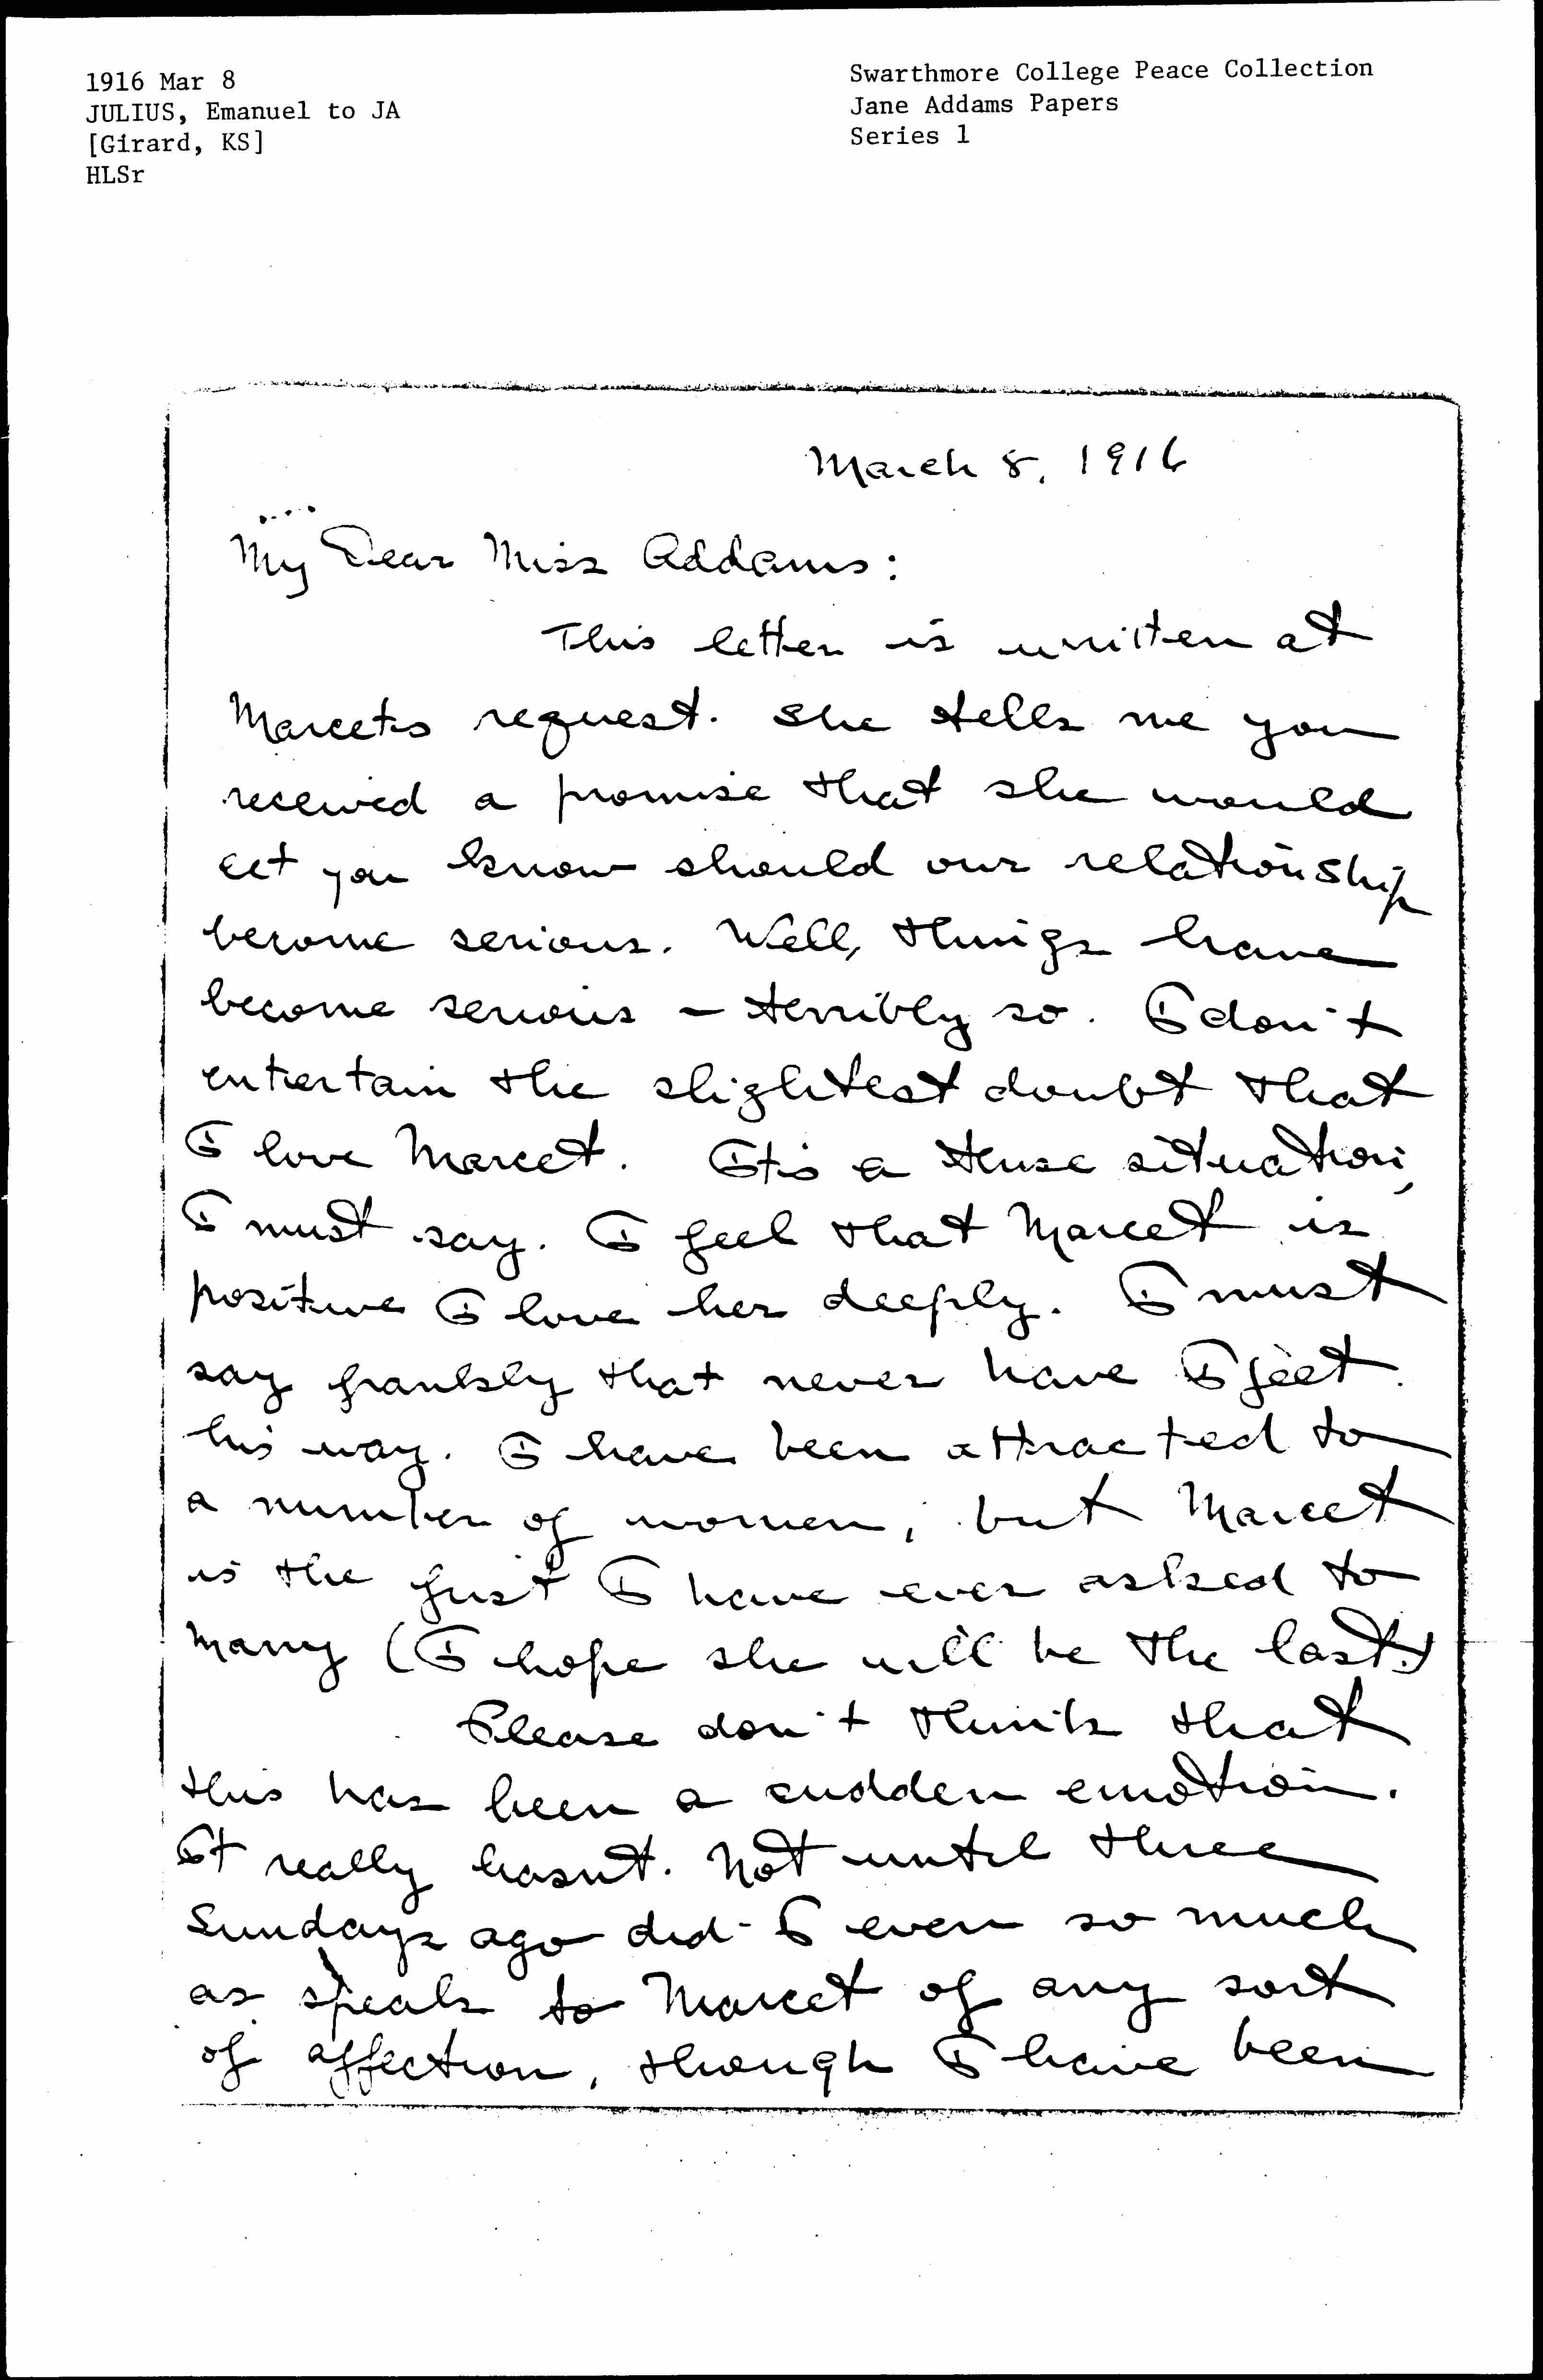 1916 Mar 8
JULIUS, Emanuel to JA
[Girard, KS]
HLSr
Swarthmore College Peace Collection
Jane Addams Papers
Series 1
March 8, 1916
My Dear Miss Addams:
This letter is written at
Marcet's request. She tells me you
received a promise that she would
let you know should our relationship
become serious. Well, things have
become serious – terribly so. I don't
entertain the slightest doubt that
I love Marcet. It's a tense situation,
I must say. I feel that Marcet is
positive I love her deeply. I must
say frankly that never have I felt
this way. I have been attracted to
a number of women, but Marcet
is the first I have ever asked to
marry (I hope she will be the last.)
Please don't think that
this has been a sudden emotion.
It really hasn't. Not until three
Sundays ago did I even so much
as speak to Marcet of any sort
of affection, though I have been